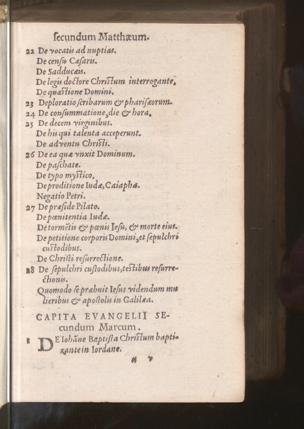 secundum Matthæum.
22 De vocatis ad nuptias.
De censu Cæsaris.
De Sadducæis.
De legis doctore Christum interrogante,
De quæstione Domini.
23 Deploratio scribarum & pharisæorum.
24 De consummatione, die & hora.
25 De decem virginibus.
De his qui talenta acceperunt.
De adventu Christi.
26 De ea quæ vnxit Dominum.
De paschate.
De typo mystico.
De proditione Iudæ, Caiapha.
Negatio Petri.
27 De præside Pilato.
De pœnitentia Iudæ.
De tormẽtis & pœnis Iesu, & morte eius.
De petitione corporis Domini, et sepulchri
custodibus.
De Christi resurrectione.
28 De sepulchri custodibus, testibus resurre-
ctionis.
Quomodo se præbuit Iesus videndum mu
lieribus & apostolis in Galilæa.
CAPITA EVANGELII SE-
cundum Marcum.
1 DE Iohãne Baptista Christum bapti-
zante in Iordane.